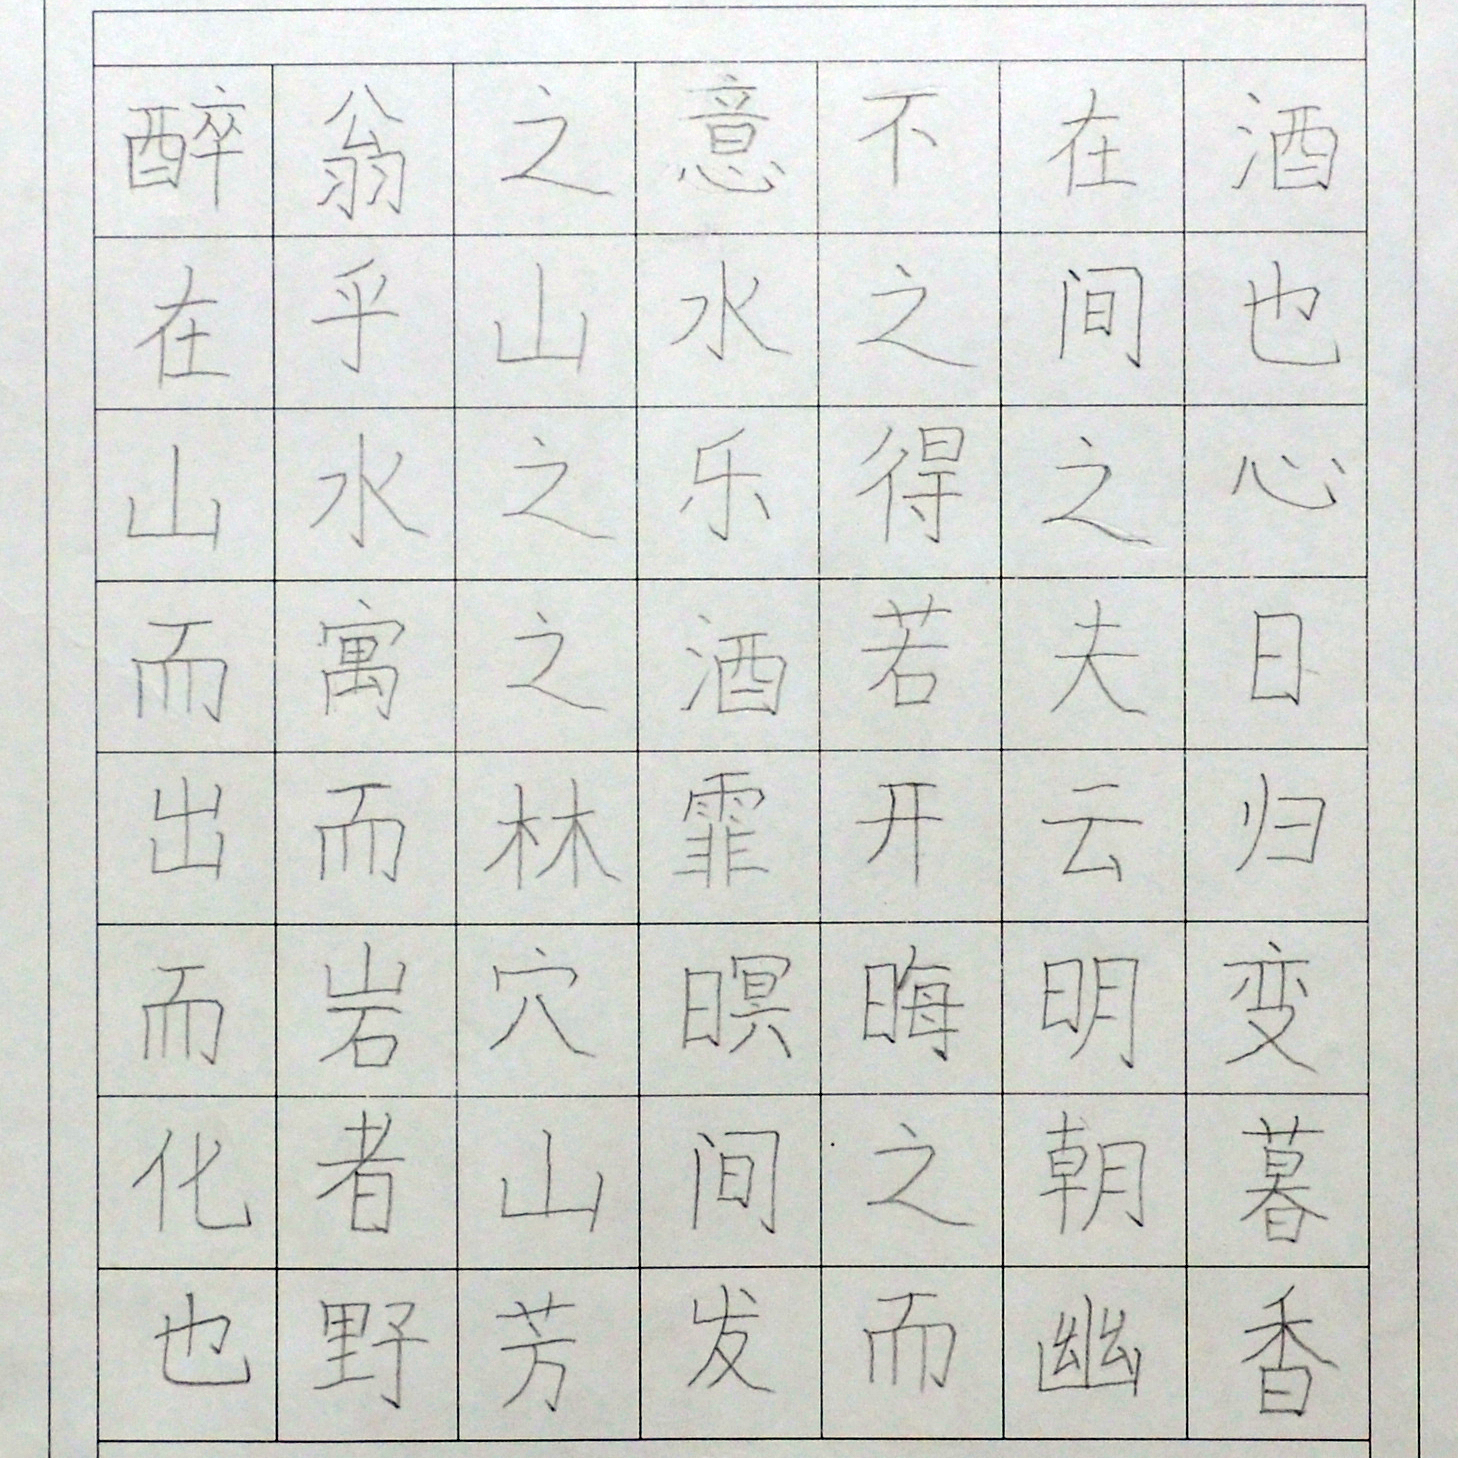 醉翁之意不在酒
在乎山水之间也
山水之乐得之心
而寓之酒若夫日
出而林霏开云归
而岩穴暝晦明变
化者山间之朝暮
也野芳发而幽香